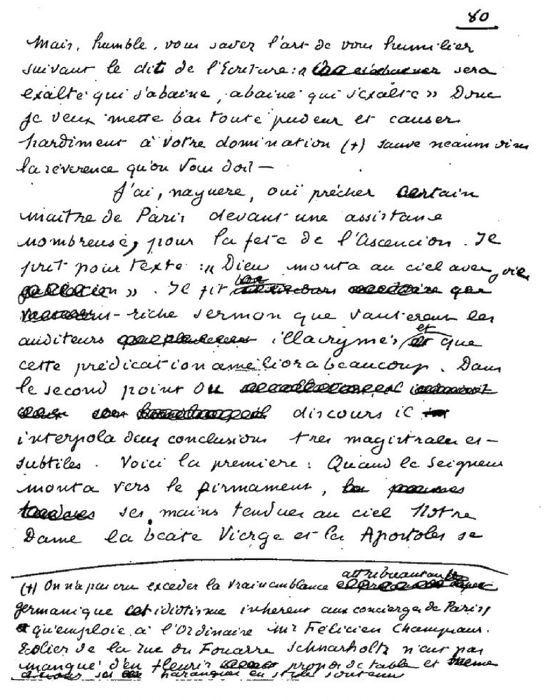 80
Mais, humble, vous savez l'art de vous humilier
suivant le dit de l'Ecriture : « sera
exalté qui s'abaisse, abaissé qui s'exalte » Donc
je veux mettre bas toute pudeur et causer
hardiment à votre domination (+) sauve néanmoins
la révérence qu'on vous doit —
J'ai, naguere, ouï prêcher certain
maître de Paris devant une assistance
nombreuse, pour la fete de l'Ascencion. Il
prit pour texte : « Dieu monta au ciel avec
». Il fit
-riche sermon que vanterent les
auditeurs illacrymés, et que
cette prédication améliora beaucoup. Dans
le second point du
discours il
interpola deux conclusions tres magistrales et
subtiles. Voici la premiere : Quand le Seigneur
monta vers le firmament,
ses mains tendues au ciel Notre
Dame la beate Vierge et les Apostoles se
(+) On n'a pas cru exceder la vraisemblance attribuant au
germanique cet idiotisme inherent aux concierges de Paris
qu'emploie à l'Ordinaire Mr Félicien Champsaur.
Ecolier de la rue du Fouarre Schnarholtz n'eut pas
manqué d'en fleurir propos de table et même